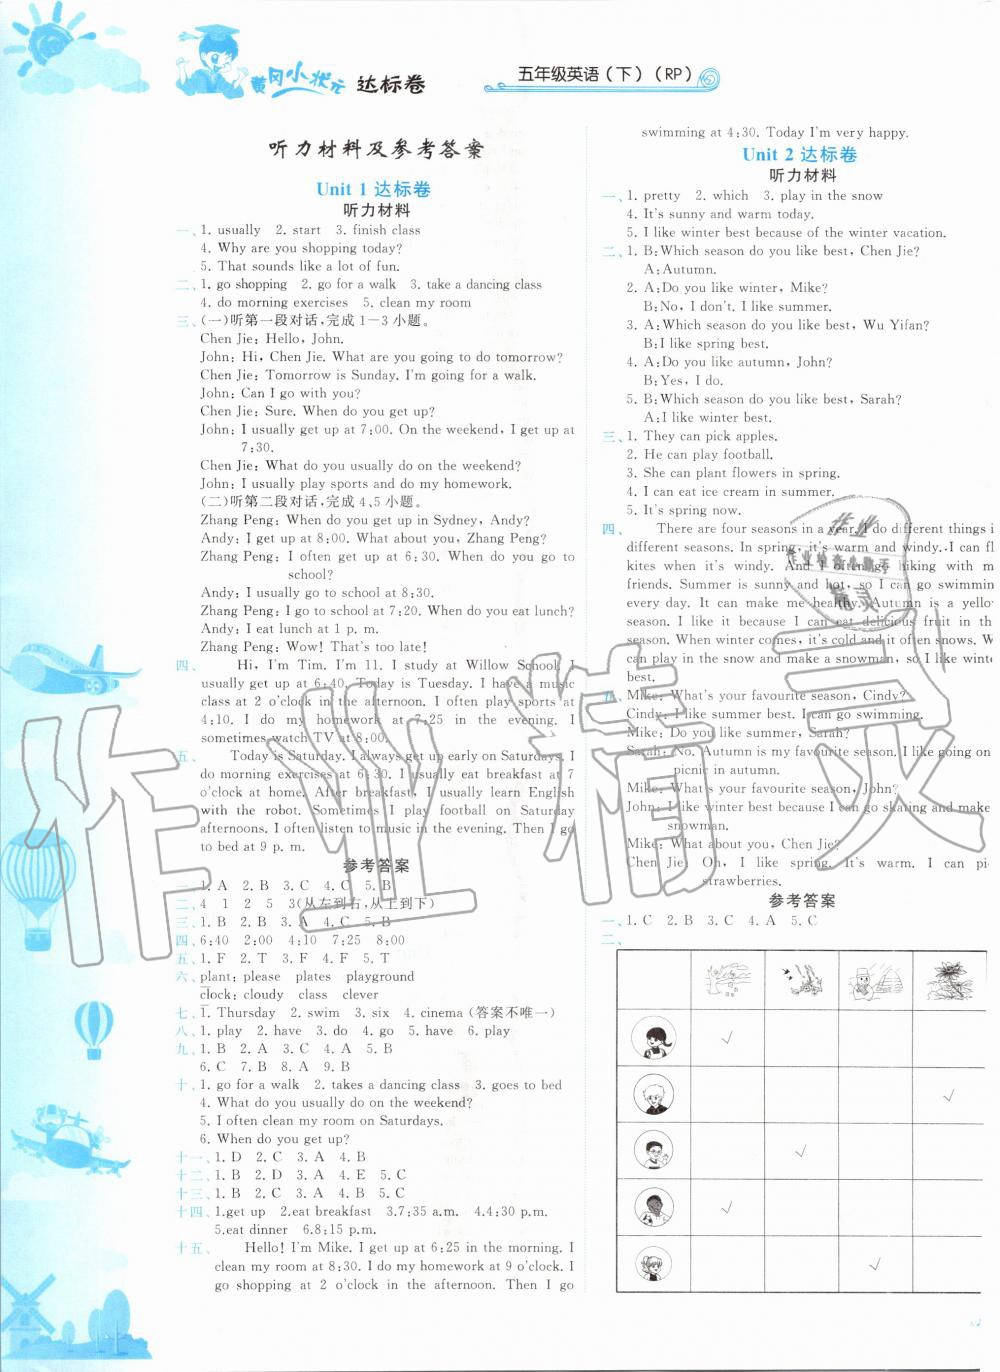 黄冈小状元 达标卷
五年级英语(下)(RP)
听力材料及参考答案
Unit 1 达标卷
听力材料
一、1. usually 2. start 3. finish class
4. Why are you shopping today?
5. That sounds like a lot of fun.
二、1. go shopping 2. go for a walk 3. take a dancing class
4. do morning exercises 5. clean my room
三、(一)听第一段对话,完成1-3小题。
Chen Jie: Hello, John.
John: Hi, Chen Jie. What are you going to do tomorrow?
Chen Jie: Tomorrow is Sunday. I'm going for a walk.
John: Can I go with you?
Chen Jie: Sure. When do you get up?
John: I usually get up at 7:00. On the weekend, I get up at
7:30.
Chen Jie: What do you usually do on the weekend?
John: I usually play sports and do my homework.
(二)听第二段对话,完成4、5小题。
Zhang Peng: When do you get up in Sydney, Andy?
Andy: I get up at 8:00. What about you, Zhang Peng?
Zhang Peng: I often get up at 6:30. When do you go to
school?
Andy: I usually go to school at 8:30.
Zhang Peng: I go to school at 7:20. When do you eat lunch?
Andy: I eat lunch at 1 p. m.
Zhang Peng: Wow! That's too late!
四、Hi, I'm Tim. I'm 11. I study at Willow School. I
get up at 6:40. Today is Tuesday. I have a music
class at 2 o'clock in the afternoon. I often play sports at
4:10. I do my homework at 7:25 in the evening. I
sometimes watch TV at 8:00.
五、Today is Saturday. I always get up early on Saturdays. I
do morning exercises at 6:30. I usually eat breakfast at 7
o'clock at home. After breakfast, I usually learn English
with the robot. Sometimes I play football on Saturday
afternoons. I often listen to music in the evening. Then I go
to bed at 9 p. m.
参考答案
一、1. A 2. B 3. C 4. C 5. B
二、4 1 2 5 3(从左到右,从上到下)
三、1. B 2. B 3. A 4. C 5. A
四、6:40 2:00 4:10 7:25 8:00
五、1. F 2. T 3. F 4. F 5. T
六、plant: please plates playground
clock: cloudy class clever
七、1. Thursday 2. swim 3. six 4. cinema (答案不唯一)
八、1. play 2. have 3. do 4. go 5. have 6. play
九、1. B 2. A 3. C 4. A 5. C
6. C 7. B 8. A 9. B
十、1. go for a walk 2. takes a dancing class 3. goes to bed
4. What do you usually do on the weekend?
5. I often clean my room on Saturdays.
6. When do you get up?
十一、1. D 2. C 3. A 4. B
十二、1. B 2. D 3. A 4. E 5. C
十三、1. B 2. C 3. A 4. B 5. C
十四、1.get up 2.eat breakfast 3.7:35 a.m. 4.4:30 p.m.
5.eat dinner 6.8:15 p.m.
十五、Hello! I'm Mike. I get up at 6:25 in the morning. I
clean my room at 8:30. I do my homework at 9 o'clock. I
go shopping at 2 o'clock in the afternoon. Then I go
swimming at 4:30. Today I'm very happy.
Unit 2 达标卷
听力材料
一、1. pretty 2. which 3. play in the snow
4. It's sunny and warm today.
5. I like winter best because of the winter vacation.
二、1. B:Which season do you like best, Chen Jie?
A:Autumn.
2. A:Do you like winter, Mike?
B:No, I don't. I like summer.
3. A:Which season do you like best, Wu Yifan?
B:I like spring best.
4. A:Do you like autumn, John?
B:Yes, I do.
5. B:Which season do you like best, Sarah?
A:I like winter best.
三、1. They can pick apples.
2. He can play football.
3. She can plant flowers in spring.
4. I can eat ice cream in summer.
5. It's spring now.
四、There are four seasons in a year. I do different things i
different seasons. In spring, it's warm and windy. I can fl
kites when it's windy. And I often go hiking with m
friends. Summer is sunny and hot, so I can go swimmin
every day. It can make me healthy. Autumn is a yello
season. I like it because I can eat delicious fruit in th
season. When winter comes, it's cold and it often snows. W
can play in the snow and make a snowman, so I like winte
best.
五、Mike: What's your favourite season, Cindy?
Cindy: I like summer best. I can go swimming.
Mike: Do you like summer, Sarah?
Sarah: No. Autumn is my favourite season. I like going on
picnic in autumn.
Mike: What's your favourite season, John?
John: I like winter best because I can go skating and make
snowman.
Mike: What about you, Chen Jie?
Chen Jie: Oh, I like spring. It's warm. I can pi
strawberries.
参考答案
一、1. C 2. B 3. C 4. A 5. C
二、
作业精灵
作业检查小助手
精灵